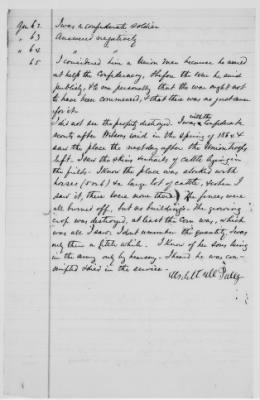 Gen 62. I was a confederate soldier
" 63 Answered negatively
" 64
65 I considered him a Union man because he aimed
at help the Confederacy. Before the war he said
publicly, & to me personally that the war ought not
to have been commenced, & that there was no good cause
for it.
I did not see the property destroyed. I was with the Confederate
scouts after Wilsons raid in the Spring of 1864 &
saw the place the next day after the Union troops
left. I saw the skins & heads of cattle lying in
the field. I know the place was stocked with
horses (5 or 6) & a large lot of cattle, & when I
saw it, there were none there. The fences were
all burned off, but no buildings. The growing
crop was destroyed, at least the corn was, which
was all I saw. I dont remember the quantity. I was
only there a little while. I know of his sons being
in the army only by hearsay. I heard he was
conscripted & died in the service.